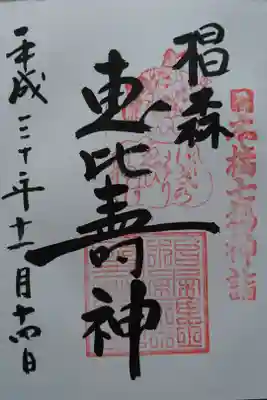 日本橋七福神詣
椙森
恵比壽神
平成三十年十一月十四日